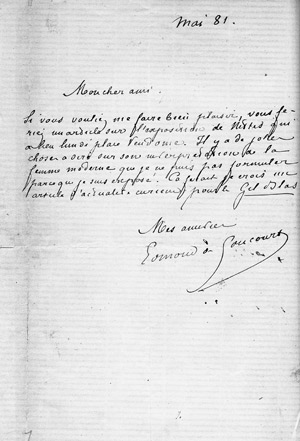 Mai 81.
Mon cher ami.
Si vous voulié, me faire bien plaisir, vous fe-
rié, un article sur l'exposition de Nittis qui
a lieu lundi place Vendome. Il y a de jolies
choses a dire sur son interprétation de la
femme moderne que je ne puis pas formuler
parceque je suis exposé. Ca ferait je crois un
article d'actualité curieux pour le Gil Blas
Mes amitiés
Edmond de Goncourt